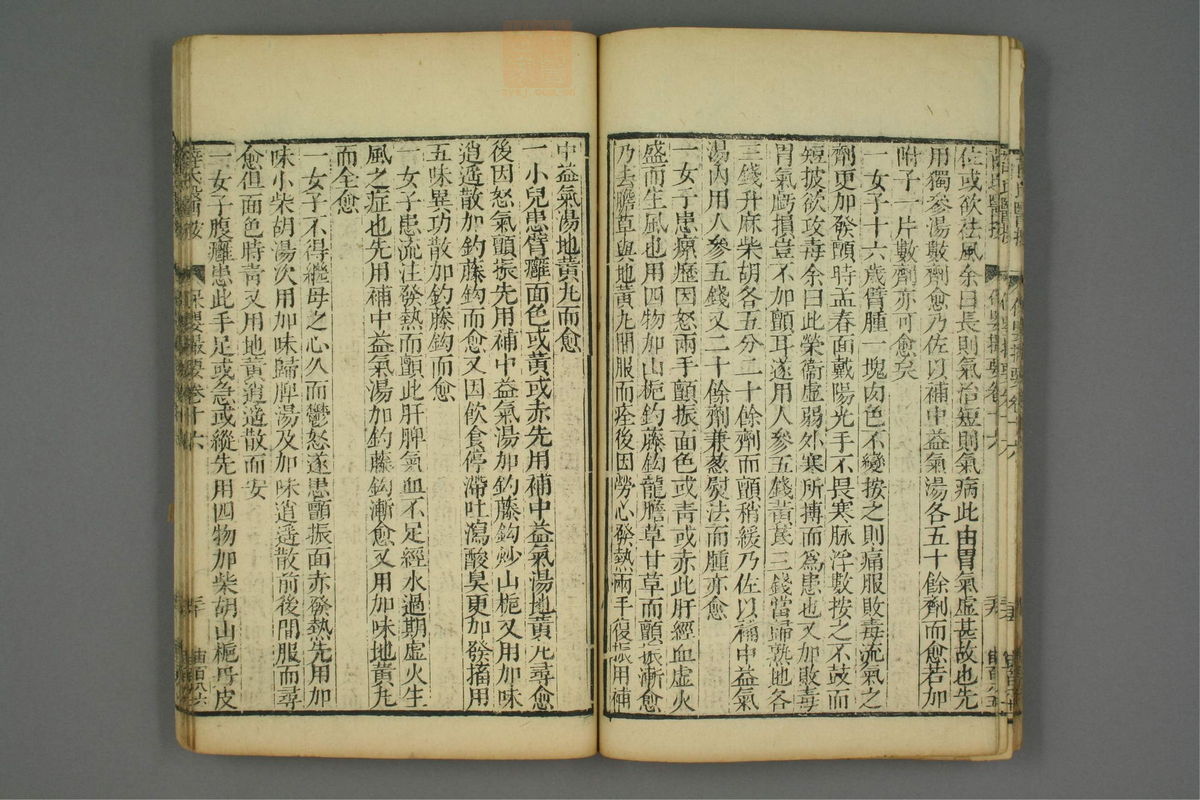 佐或欲祛風余曰長則氣治短則氣病此由胃氣虛甚故也先
用獨參湯數劑愈乃佐以補中益氣湯各五十餘劑而愈若加
附子一片數劑亦可愈矣
一女子十六歲臂腫一塊肉色不變按之則痛服敗毒流氣之
劑更加發顫時孟春面戴陽光手不畏寒脉浮數按之不鼓而
短披欲攻毒余曰此榮衞虛弱外寒所搏而爲患也又加敗毒
胃氣虧損豈不加顫耳遂用人參五錢黃芪三錢當歸熟地各
三錢升麻柴胡各五分二十餘劑而顫稍緩乃佐以補中益氣
湯內用人參五錢又二十餘劑兼葱熨法而腫亦愈
一女子患瘰癧因怒兩手顫振面色或青或赤此肝經血虛火
盛而生風也用四物加山梔鈎藤鈎龍膽草甘草而顫振漸愈
乃去膽草與地黃丸間服而痊後因勞心發熱兩手復振用補
中益氣湯地黃丸而愈
一小兒患臂癰面色或黃或赤先用補中益氣湯地黃丸尋愈
後因怒氣顫振先用補中益氣湯加鈎藤鈎炒山梔又用加味
逍遥散加鈎藤鈎而愈又因飲食停滯吐瀉酸臭更加發搐用
五味異功散加鈎藤鈎而愈
一女子患流注發熱而顫此肝脾氣血不足經水過期虛火生
風之症也先用補中益氣湯加鈎藤鈎漸愈又用加味地黃丸
而全愈
一女子不得繼母之心久而鬱怒遂患顫振面赤發熱先用加
味小柴胡湯次用加味歸脾湯及加味逍遥散前後間服而尋
愈但面色時青又用地黃逍遥散而安
一女子腹癰患此手足或急或縱先用四物加柴胡山梔丹皮
保嬰撮要卷十六